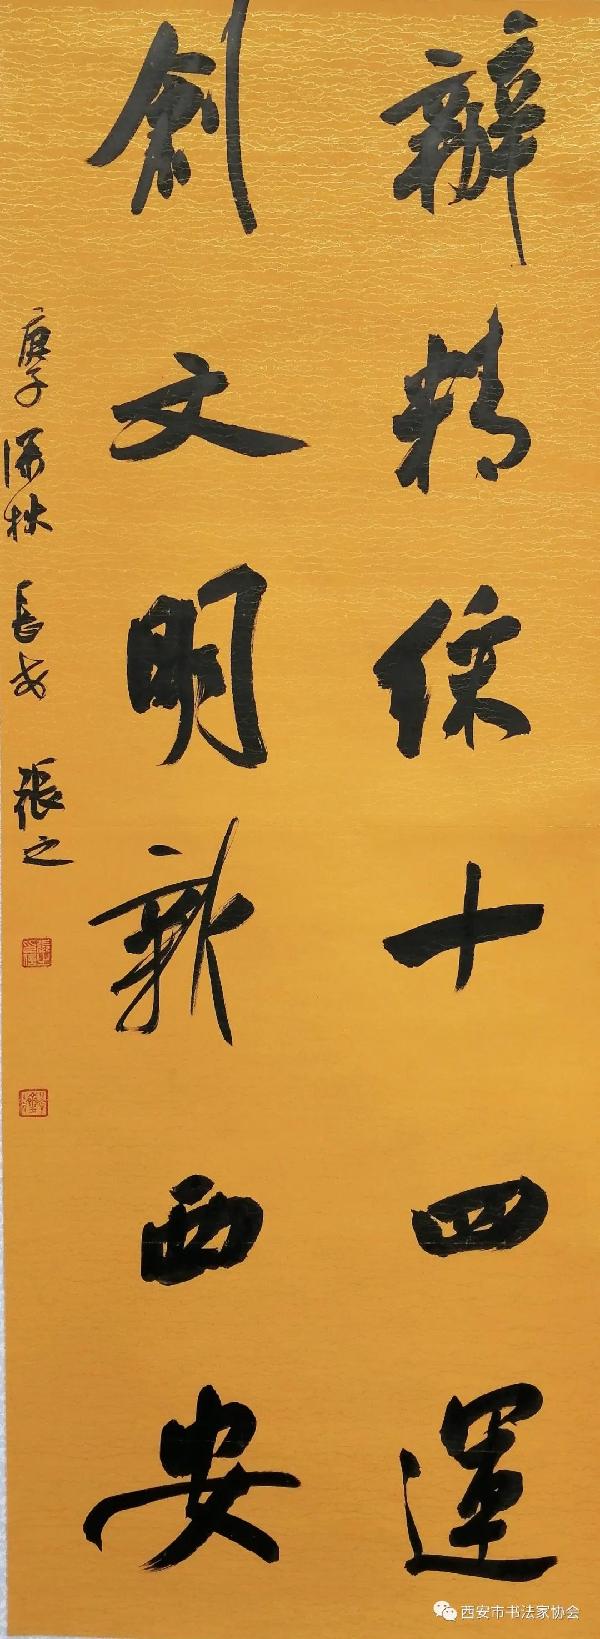 辦精綵十四運
創文明新西安
庚子深秋長安張之
西安市书法家协会